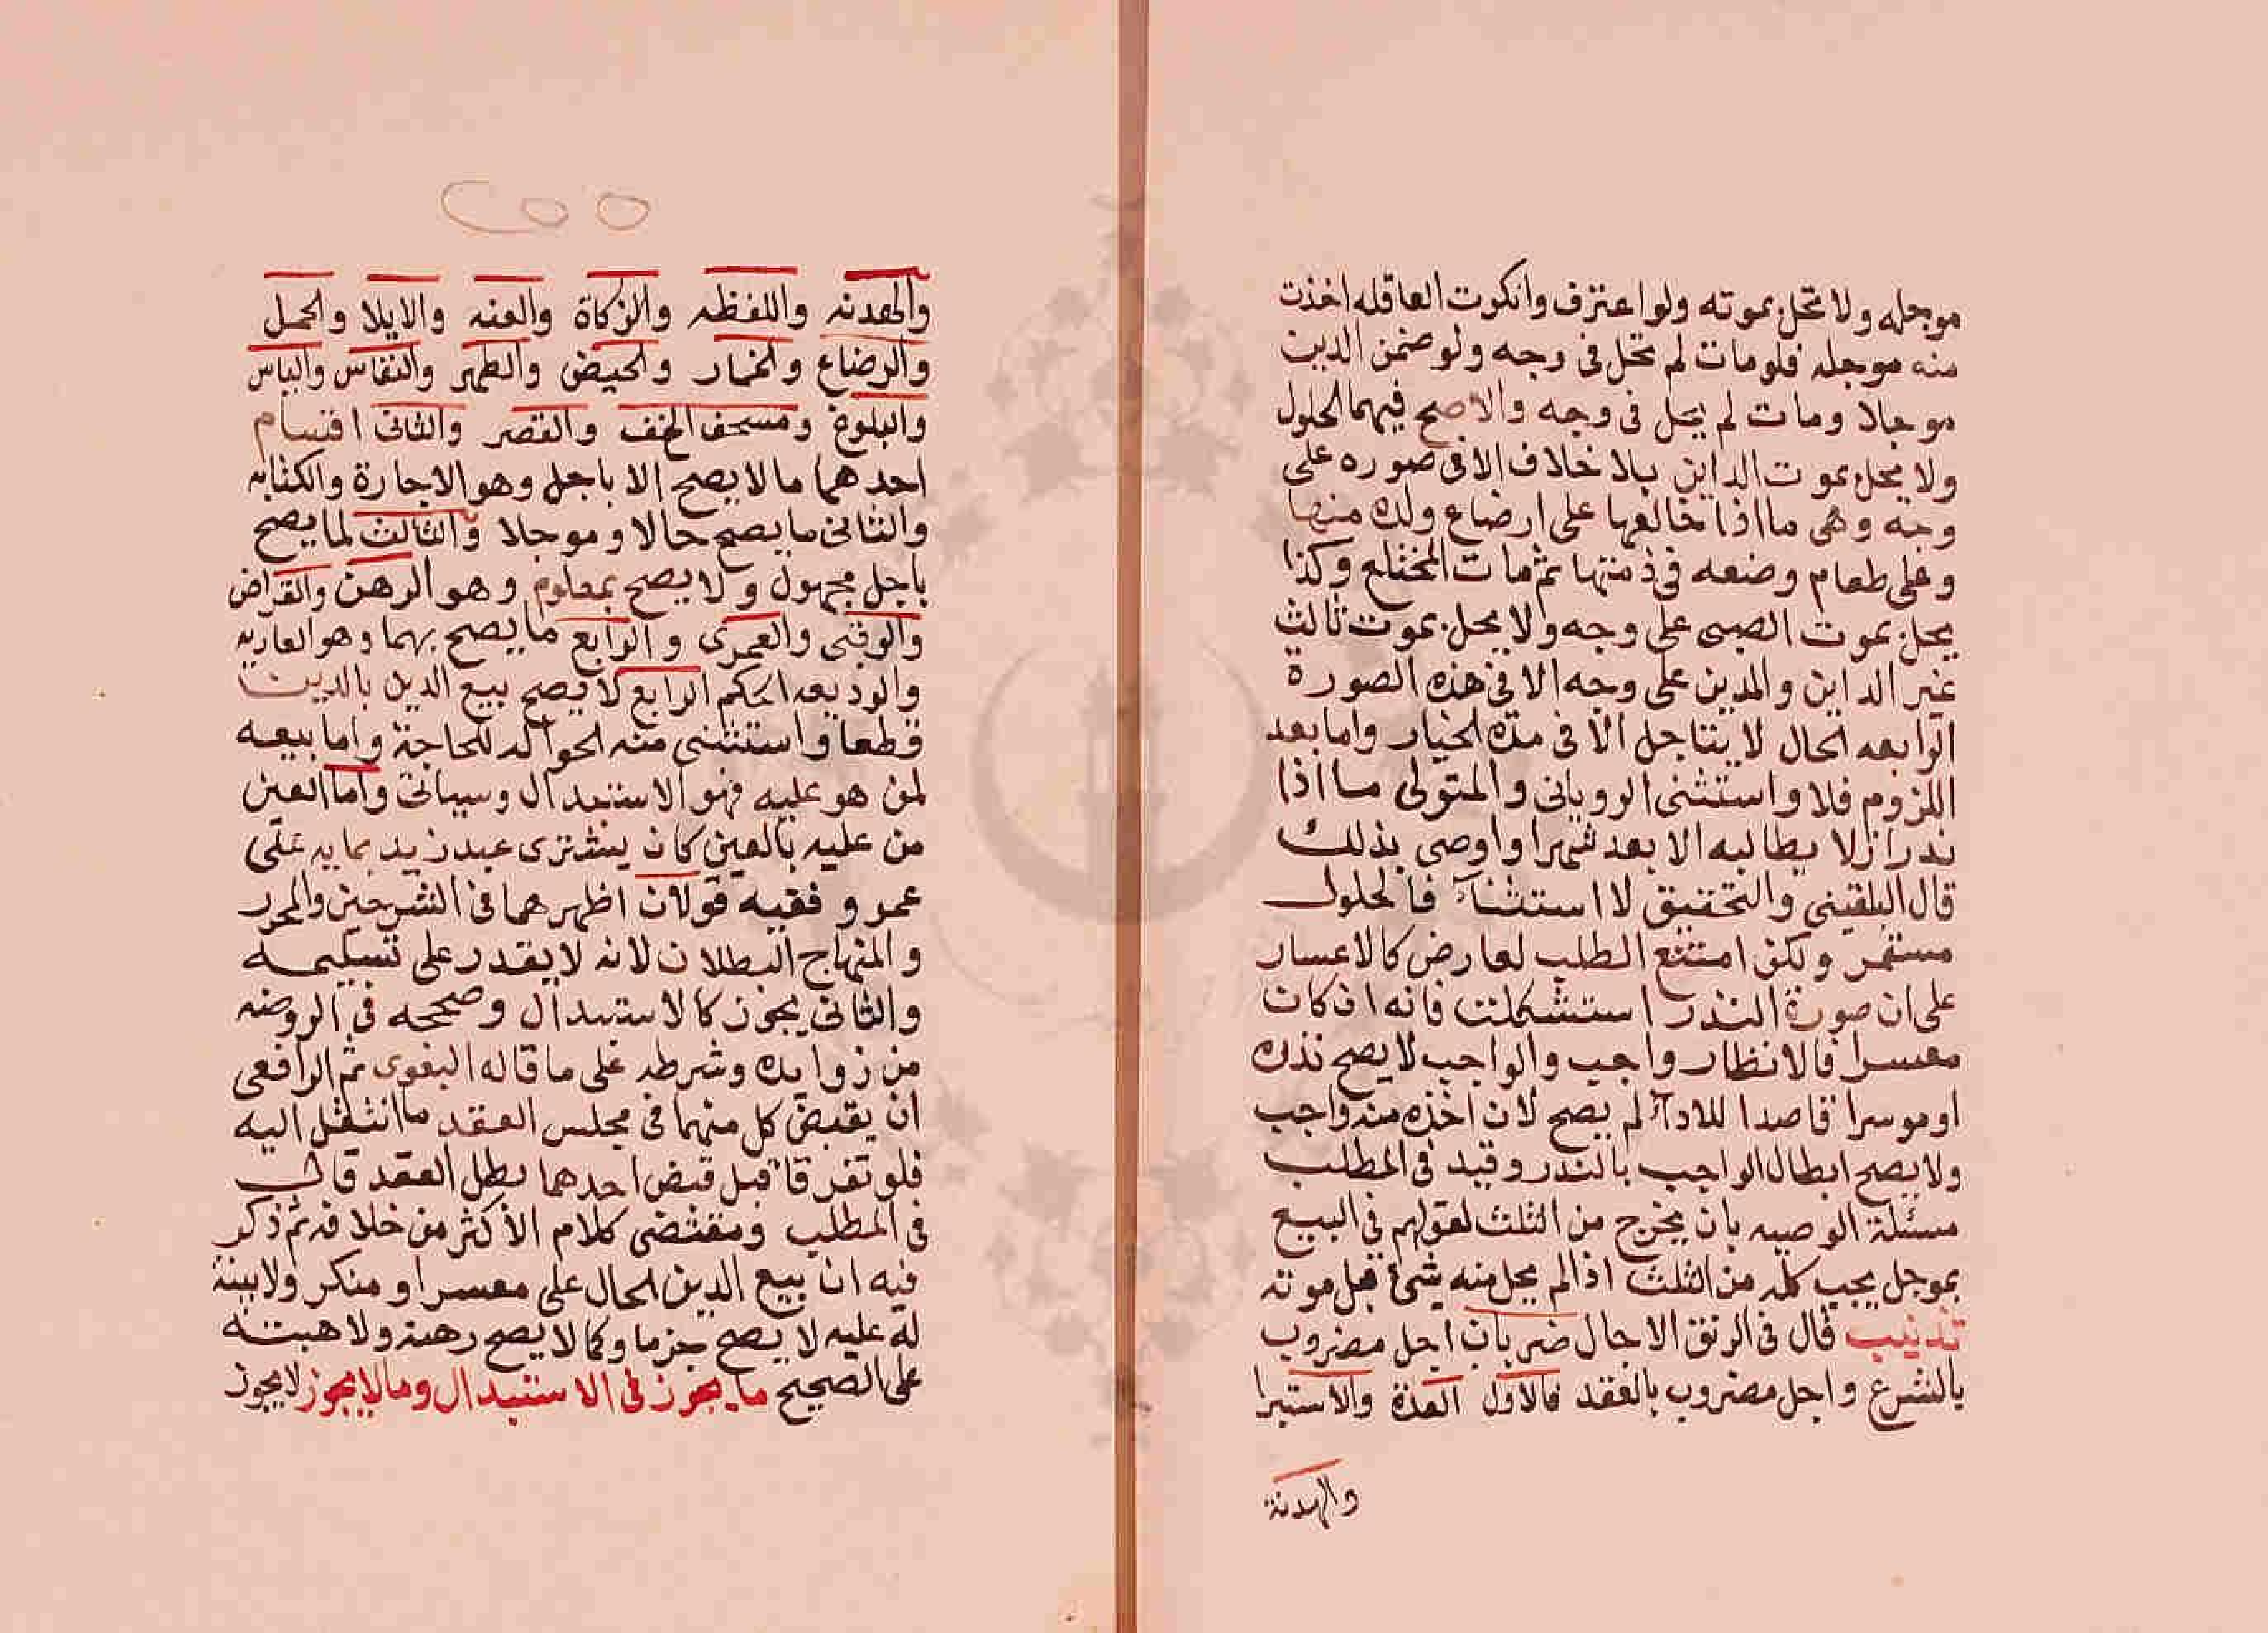 موجله ولا تحل بموته ولو اعترف وانكرت العاقله اخذت
منه موجله فلو مات لم تحل فى وجه ولو ضمن الدين
موجلا ومات لم يحل فى وجه والاصح فيهما الحلول
ولا يحل بموت الداين بلا خلاف الا فى صوره على
وجه وهى ما اذا خالعها على ارضاع ولده منها
وعلى طعام وضعه فى ذمتها ثم مات المختلع وكذا
يحل بموت الصبى على وجه ولا يحل بموت ثالث
غير الداين والمدين على وجه الا فى هذه الصورة
الرابعه الحال لا يتاجل الا فى مدة الخيار واما بعد
اللزوم فلا واستثنى الرويانى والمتولى ما اذا
نذر ان لا يطالبه الا بعد شهر او اوصى بذلك
قال البلقينى والتحقيق لا استثنآء فالحلول
مستمر ولكن امتنع الطلب لعارض كالاعسار
على ان صورة النذر استشكلت فانه ان كان
معسرا فالانظار واجب والواجب لا يصح نذره
او موسرا قاصدا للادآء لم يصح لان اخذه منه واجب
ولا يصح ابطال الواجب بالنذر وقيد فى المطلب
مسئلة الوصيه بان يخرج من الثلث لقولهم فى البيع
بموجل يجب كله من الثلث اذا لم يحل منه شئ قبل موته
تذنيب قال فى الرونق الاجال ضربان اجل مضروب
بالشرع واجل مضروب بالعقد فالاول العدة والاستبرا
والهدنة
والهدنه واللقطه والزكاة والعنه والايلا والحمل
والرضاع والخيار والحيض والطهر والنفاس والياس
والبلوغ ومسح الخف والقصر والثانى اقسام
احدهما ما لا يصح الا باجل وهو الاجارة والكتابه
والثانى ما يصح حالا وموجلا والثالث لما يصح
باجل مجهول ولا يصح بمعلوم وهو الرهن والقراض
والرقبى والعمرى والرابع ما يصح بهما وهو العاريه
والوديعه الحكم الرابع لا يصح بيع الدين بالدين
قطعا واستثنى منه الحواله للحاجة واما بيعه
لمن هو عليه فهو الاستبدال وسياتى واما لغير
من عليه بالعين كان يشترى عبد زيد بمايه على
عمرو ففيه قولان اظهرهما فى الشرحين والمحرر
والمنهاج البطلان لانه لا يقدر على تسليمه
والثانى يجوز كالاستبدال وصححه فى الروضه
من زوايده وشرطه على ما قاله البغوى ثم الرافعى
ان يقبض كل منهما فى مجلس العقد ما انتقل اليه
فلو تفرقا قبل قبض احدهما بطل العقد قال
فى المطلب ومقتضى كلام الاكثر من خلافه ثم ذكر
فيه ان بيع الدين الحال على معسر او منكر ولا بينة
له عليه لا يصح جزما وكما لا يصح رهنه ولا هبته
على الصحيح ما يجوز فى الاستبدال وما لا يجوز لا يجوز